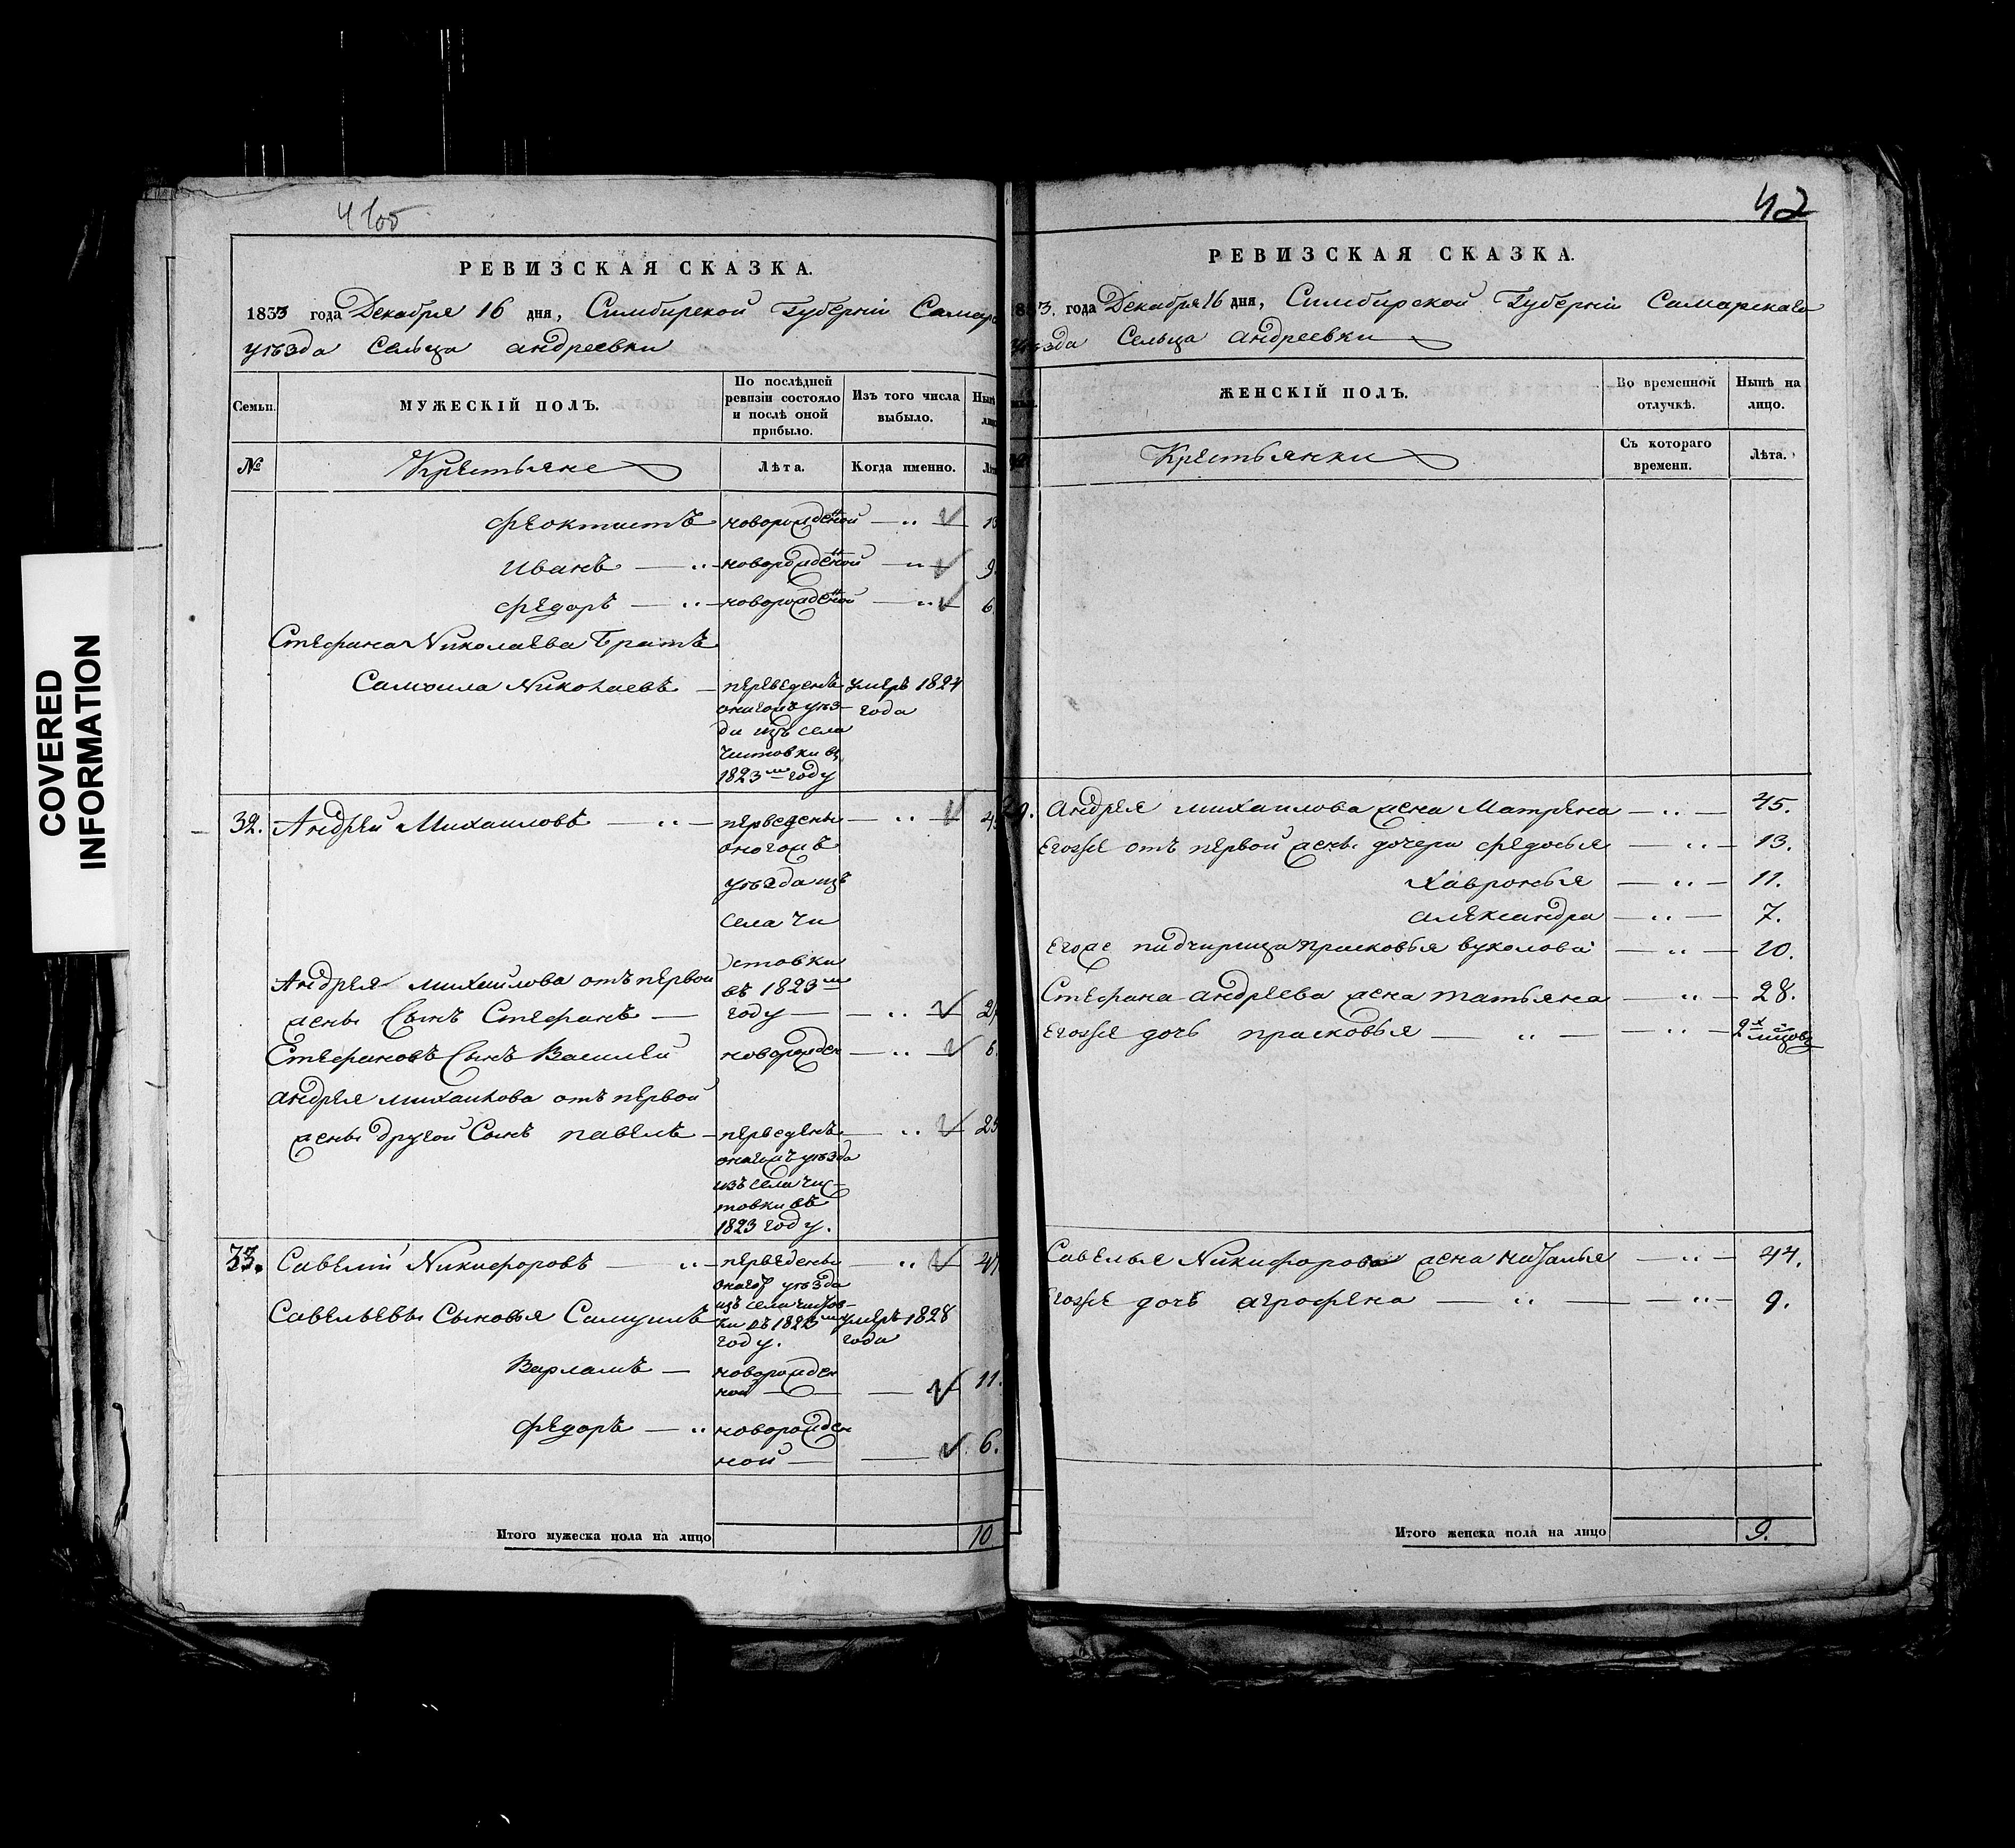 COVERED
INFORMATION
41об
РЕВИЗСКАЯ СКАЗКА.
1833 года Декабря 16 дня, Симбирской Губернiи Самарс
уѣзда Сельца Андреевки
Семьи.
МУЖЕСКIЙ ПОЛЪ.
По послѣдней
ревизiи состояло
и послѣ оной
прибыло.
Изъ того числа
выбыло.
Нынѣ
лиц
№
Крестьяне
Лѣта.
Когда именно.
Лѣт
Феоктистъ новорожденной — „ — 13
Иванъ — „ — новорожденной — „ — 9.
Федоръ — „ — новорожденной — „ — 6
Стефана Николаева братъ
Самоила Николаевъ — переведенъ умеръ 1824
онагожъ уѣз- года
да изъ села
Чистовки въ
1823м году
32. Андрей Михаиловъ — „ — переведены — „ —
оногожъ
уѣзда изъ
села Чи
стовки
Андрея Михаилова отъ первой въ 1823м
жены сынъ Стефанъ — году — — „ —
Стефановъ сынъ Василей новорожден — „ — 6.
Андрея Михаилова отъ первой
жены другой сынъ Павелъ — переведенъ — „ — 25
онагожъ уѣзда
изъ села Чис-
товки въ
1823 году.
33. Савелiй Никифоровъ — „ — переведены — „ —
онагож уѣзда
изъ села Чистов-
Савельевы сыновья Самуилъ ки въ 1823м умеръ 1828
году. года
Варламъ — новорожден
ной — — 11.
Федоръ — „ новорожден
ной — — 6.
Итого мужеска пола на лицо 10
42
РЕВИЗСКАЯ СКАЗКА.
1833. года Декабря 16 дня, Симбирской Губернiи Самарскаго
уѣзда Сельца Андреевки
ЖЕНСКIЙ ПОЛЪ.
Во временной
отлучкѣ.
Нынѣ на
лицо.
Крестьянки
Съ котораго
времени.
Лѣта.
Андрея Михаилова жена Матрена — „ — 45.
Егожже отъ первой жены дочери Федосья — „ — 13.
Хавронья — „ — 11.
Александра — „ — 7.
Егоже падчирица Прасковья Вуколова — „ —
Стефана Андреева жена Татьяна — „ — 28.
Егожже дочь Прасковья — „ — — „ —
Савелья Никифорова жена Наталья — „ — 44.
Егожже дочь Агрофена — „ — — „ — 9.
Итого женска пола на лицо 9.